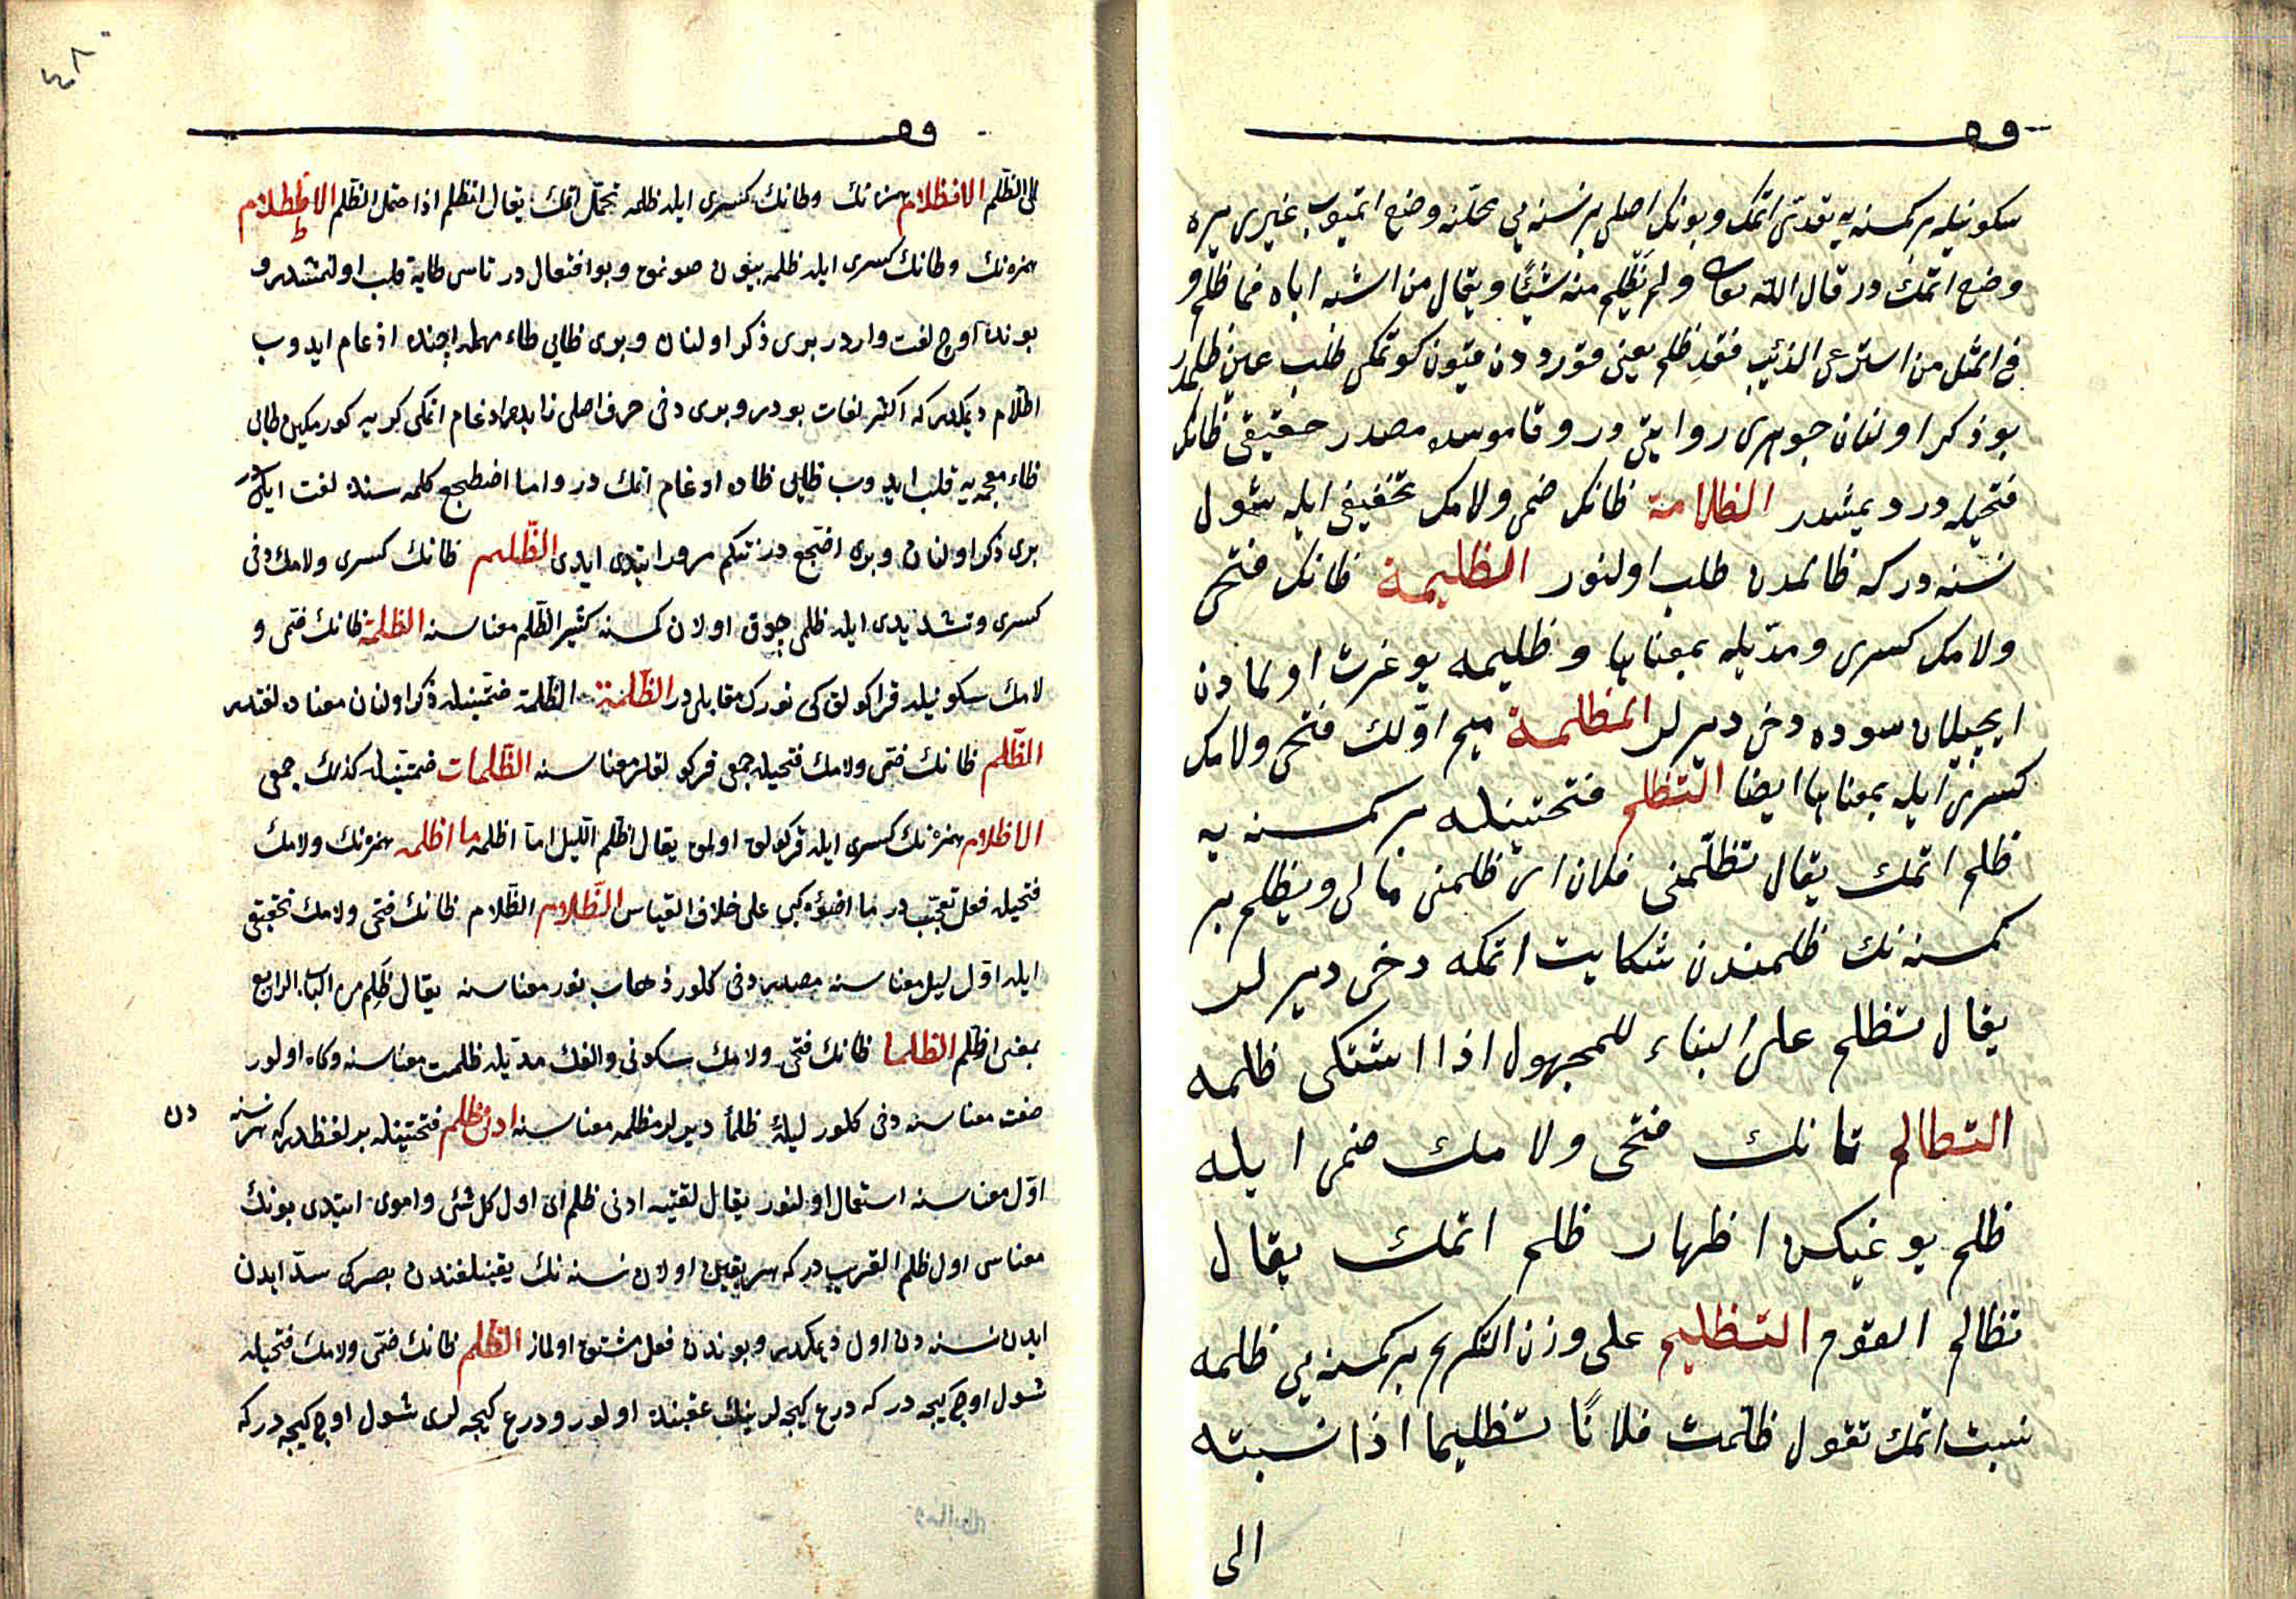 سكونيله بر كمسنه يه تعدّى اتمك و بونك اصلى بر نسنه يى محلّنه وضع اتميوب غيرى يره
وضع اتمك در قال الله تعا ولم تَظلِم منه شيئًا ويقال من اشبه اباه فما ظلم و
فى المثل من استرعى الذئب فقد ظلم يعنى قورددن قيون كوتمكى طلب عين ظلمدر
بو ذكر اولنان جوهرى روايتى در و قاموسده مصدر حقيقى ظانك
فتحيله در ديمشدر الظلامة ظانك ضمى ولامك تخفيفى ايله شول
نسنه در كه ظالمدن طلب اولنور الظليمة ظانك فتحى
ولامك كسرى ومدّيله بمعناها و ظليمه يوغرت اولمادن
ايچيلان سوده دخى ديرلر المظلمة ميم اوّلك فتحى ولامك
كسرى ايله بمعناها ايضا التظلم فتحتينله بر كمسنه يه
ظلم اتمك يقال تظلّمنى فلان اى ظلمنى مالى ويظلم بر
كمسنه نك ظلمندن شكايت اتمكه دخى ديرلر
يقال تظلم على البناء للمجهول اذا اشتكى ظلمه
التظالم تانك فتحى ولامك ضمى ايله
ظلم يوغيكن اظهار ظلم اتمك يقال
تظالم القوم التظليم على وزن التكريم بر كمسنه يى ظلمه
نسبت اتمك تقول ظلّمت فلانًا تظليما اذا نسبته
الى
٤٨
الى الظّلم الانظلام همزه نك وظانك كسرى ايله ظلمه تحمّل اتمك يقال انظلم اذا احتمل الظّلم الاظطلام
همزه نك وطانك كسرى ايله ظلمه بيون صونمق و بو افتعال در تاسى طايه قلب اولنمشدر و
بونده اوچ لغت واردر برى ذكر اولنان و برى ظايى طاء مهمله ايچنده ادغام ايدوب
اطّلام ديمكدر كه اكثر لغات بودر و برى دخى حرف اصلى زايده ادغام اتمكى كريه كورمكين طايى
ظاء معجمه يه قلب ايدوب ظايى ظاده ادغام اتمك در و اما اضطجع كلمه سنده لغت ايكيدر
برى ذكر اولنان و برى اضّجع در نتكم مرور ايتدى ايدى الظّليم ظانك كسرى ولامك دخى
كسرى وتشديدى ايله ظلمى چوق اولان كمسنه كثير الظّلم معناسنه الظلمة ظانك ضمى و
لامك سكونيله قراكولق كى نورك مقابلى در الظّلمة الظّلمة ضمّتينله ذكر اولنان معناده لغتدر
الظّلم ظانك ضمى ولامك فتحيله جمعى قركولقلر معناسنه الظّلمات ضمّتينله كذلك جمعى
الاظلام همزه نك كسرى ايله قركولق اولمق يقال اظلم اللّيل اما اظلمه ما اظلمه همزه نك ولامك
فتحيله فعل تعجّب در ما اضوٴه كبى على خلاف القياس الظّلام الظّلام ظانك فتحى ولامك تخفيفى
ايله اوّل ليل معناسنه مصدر دخى كلور ذهاب نور معناسنه يقال ظَلِم من الباب الرابع
بمعنى اظلم الظلما ظانك فتحى ولامك سكونى والفك مدّيله ظلمت معناسنه وكاه اولور
صفت معناسنه دخى كلور ليلةٌ ظلمأ ديرلر مظلمه معناسنه ادنى ظلم فتحتينله بر لفظدر كه هر نسنه دن
اوّل معناسنه استعمال اولنور يقال لقيته ادنى ظلم اى اول كل شئ و اموى ايتدى بونك
معناسى اول ظلم القريب در كه هر يقين اولان نسنه نك يقينلغندن بصرى سدّ ايدن
ايدن نسنه دن اول ديمكدر و بوندن فعل مشتق اولماز الظّلم ظانك ضمّى ولامك فتحيله
شول اوچ كيجه در كه درع كيجه لرينك عقبنده اولور و درع كيجه لرى شول اوچ كيجه در كه